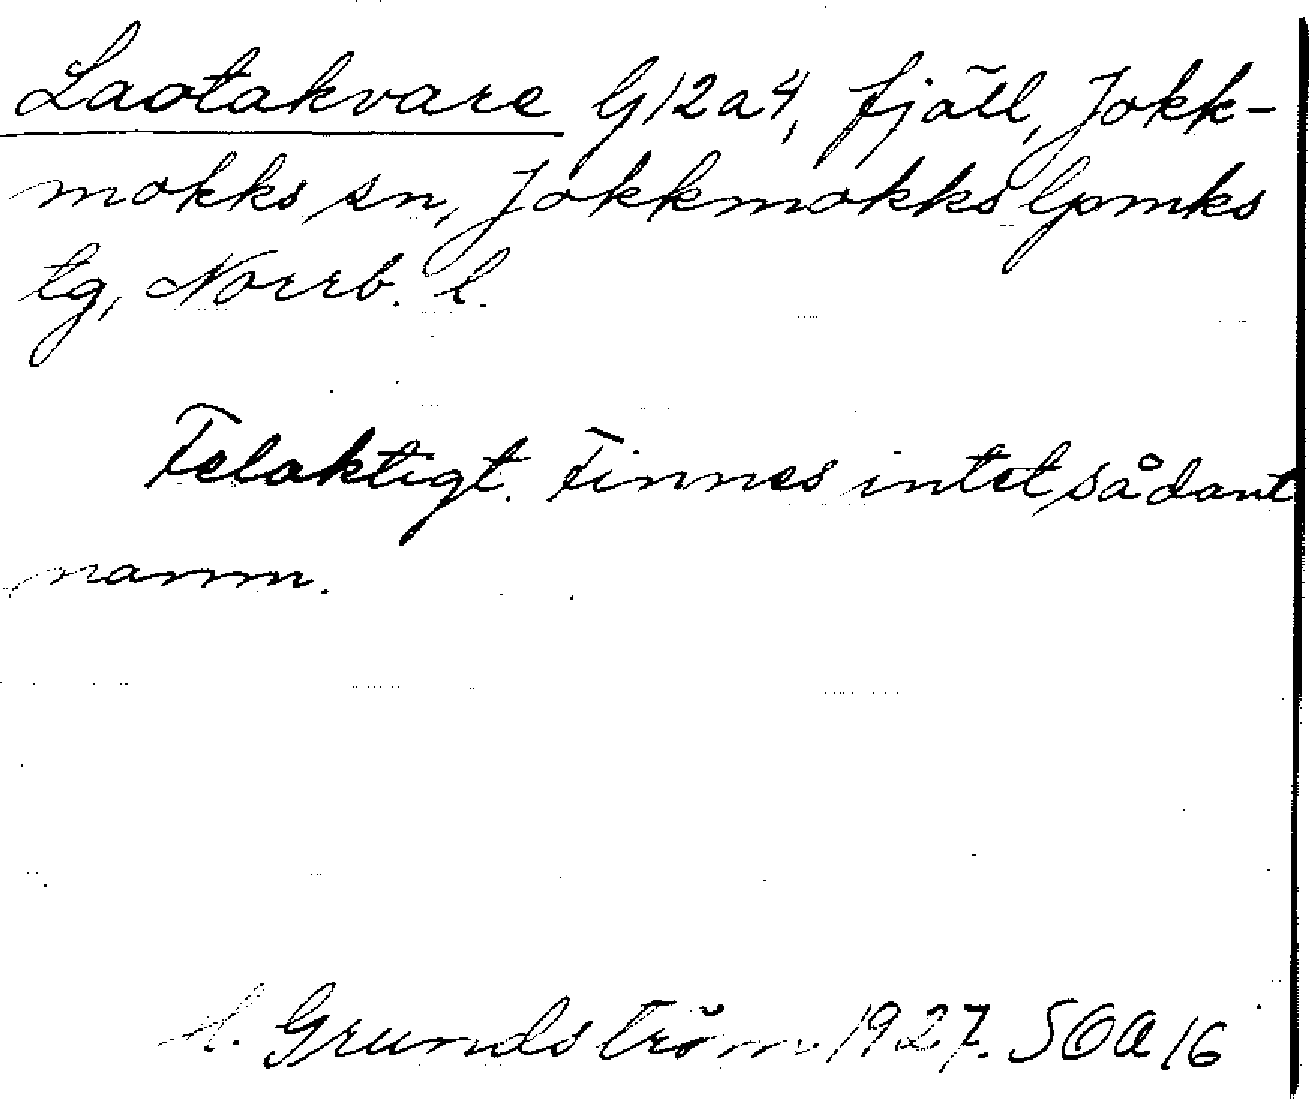 Laotakvare G12a4, fjäll, Jokk-
mokks sn, Jokkmokks lpmks
tg, Norrb. l.
Felaktigt. Finnes intet sådant
namn.
H. Grundström 1927. SOA 16